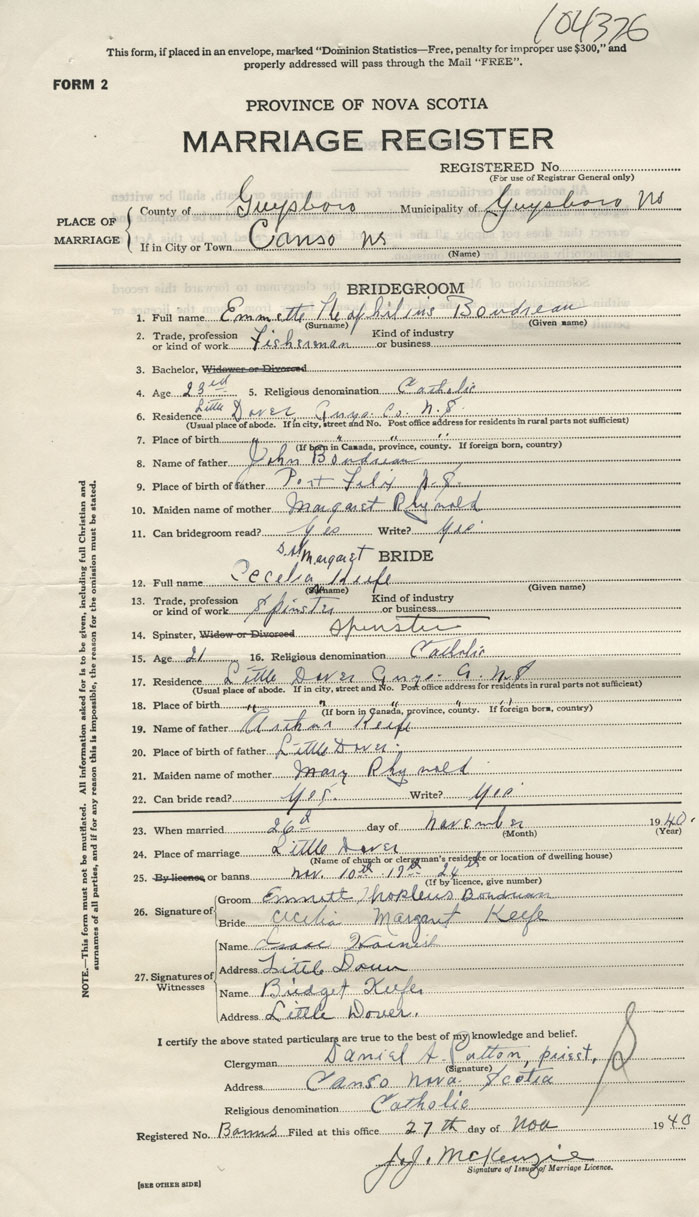 104376
This form, if placed in an envelope, marked "Dominion Statistics—Free, penalty for improper use $300," and
properly addressed will pass through the Mail "FREE".
FORM 2
PROVINCE OF NOVA SCOTIA
MARRIAGE REGISTER
REGISTERED No.
(For use of Registrar General only)
PLACE OF MARRIAGE { County of Guysboro Municipality of Guysboro NS
If in City or Town Canso NS
(Name)
BRIDEGROOM
1. Full name Emmette Boudreau
(Surname) (Given name)
2. Trade, profession or kind of work Fisherman Kind of industry or business
3. Bachelor, Widower or Divorced
4. Age 23rd 5. Religious denomination Catholic
6. Residence Little Dover Guys. Co. N.S.
(Usual place of abode. If in city, street and No. Post office address for residents in rural parts not sufficient)
7. Place of birth " " " "
(If born in Canada, province, county. If foreign born, country)
8. Name of father John Boudreau
9. Place of birth of father Port Felix N.S.
10. Maiden name of mother Margaret Rhynold
11. Can bridegroom read? Yes Write? Yes
Margaret BRIDE
12. Full name Cecelia Keefe
(Surname) (Given name)
13. Trade, profession or kind of work Spinster Kind of industry or business
14. Spinster, Widow or Divorced Spinster
15. Age 21 16. Religious denomination Catholic
17. Residence Little Dover Guys. Co. N.S.
(Usual place of abode. If in city, street and No. Post office address for residents in rural parts not sufficient)
18. Place of birth " " " "
(If born in Canada, province, county. If foreign born, country)
19. Name of father Arthur Keefe
20. Place of birth of father Little Dover.
21. Maiden name of mother Mary Rhynold
22. Can bride read? Yes. Write? Yes
23. When married 26th day of November 1940.
(Month) (Year)
24. Place of marriage Little Dover
(Name of church or clergyman's residence or location of dwelling house)
25. By licence, or banns Nov. 10th 17th 24th
(If by licence, give number)
26. Signature of { Groom Emmett Boudreau
Bride Cecilia Margaret Keefe
27. Signatures of Witnesses { Name Isaac
Address Little Dover
Name Bridget Keefe
Address Little Dover.
I certify the above stated particulars are true to the best of my knowledge and belief.
Clergyman Daniel A. Patton, priest,
(Signature)
Address Canso Nova Scotia
Religious denomination Catholic
Registered No. Banns Filed at this office 27th day of Nov 1940
J.J. McKenzie
Signature of Issuer of Marriage Licence.
[SEE OTHER SIDE]
NOTE.—This form must not be mutilated. All information asked for is to be given, including full Christian and
surnames of all parties, and if for any reason this is impossible, the reason for the omission must be stated.